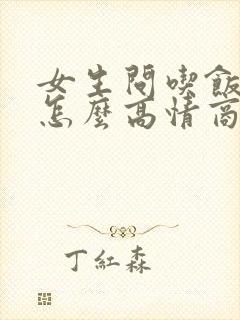 女生問喫飯
怎麼高情商
丁紅森